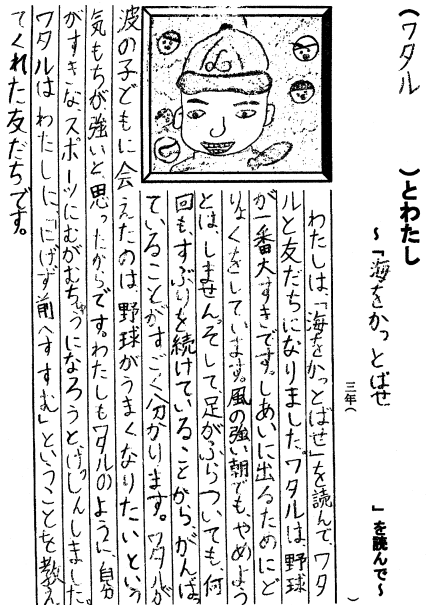 (ワタル　　　)とわたし
～「海をかっとばせ　　　」を読んで～
三年(　　　)
わたしは、「海をかっとばせ」を読んで、ワタ
ルと友だちになりました。ワタルは、野球
が一番大すきです。しあいに出るためにど
りょくをしています。風の強い朝でも、やめよう
とは、しません。そして、足がふらついても、何
回も、すぶりを続けていることから、がんばっ
ていることがすごく分かります。ワタルが
波の子どもに会えたのは、野球がうまくなりたいという
気もちが強いと、思ったからです。わたしもワタルのように、自分
がすきなスポーツにむがむちゅうになろうと、けっしんしました。
ワタルは、わたしに、「にげず前へすすむ」ということを教え
てくれた友だちです。